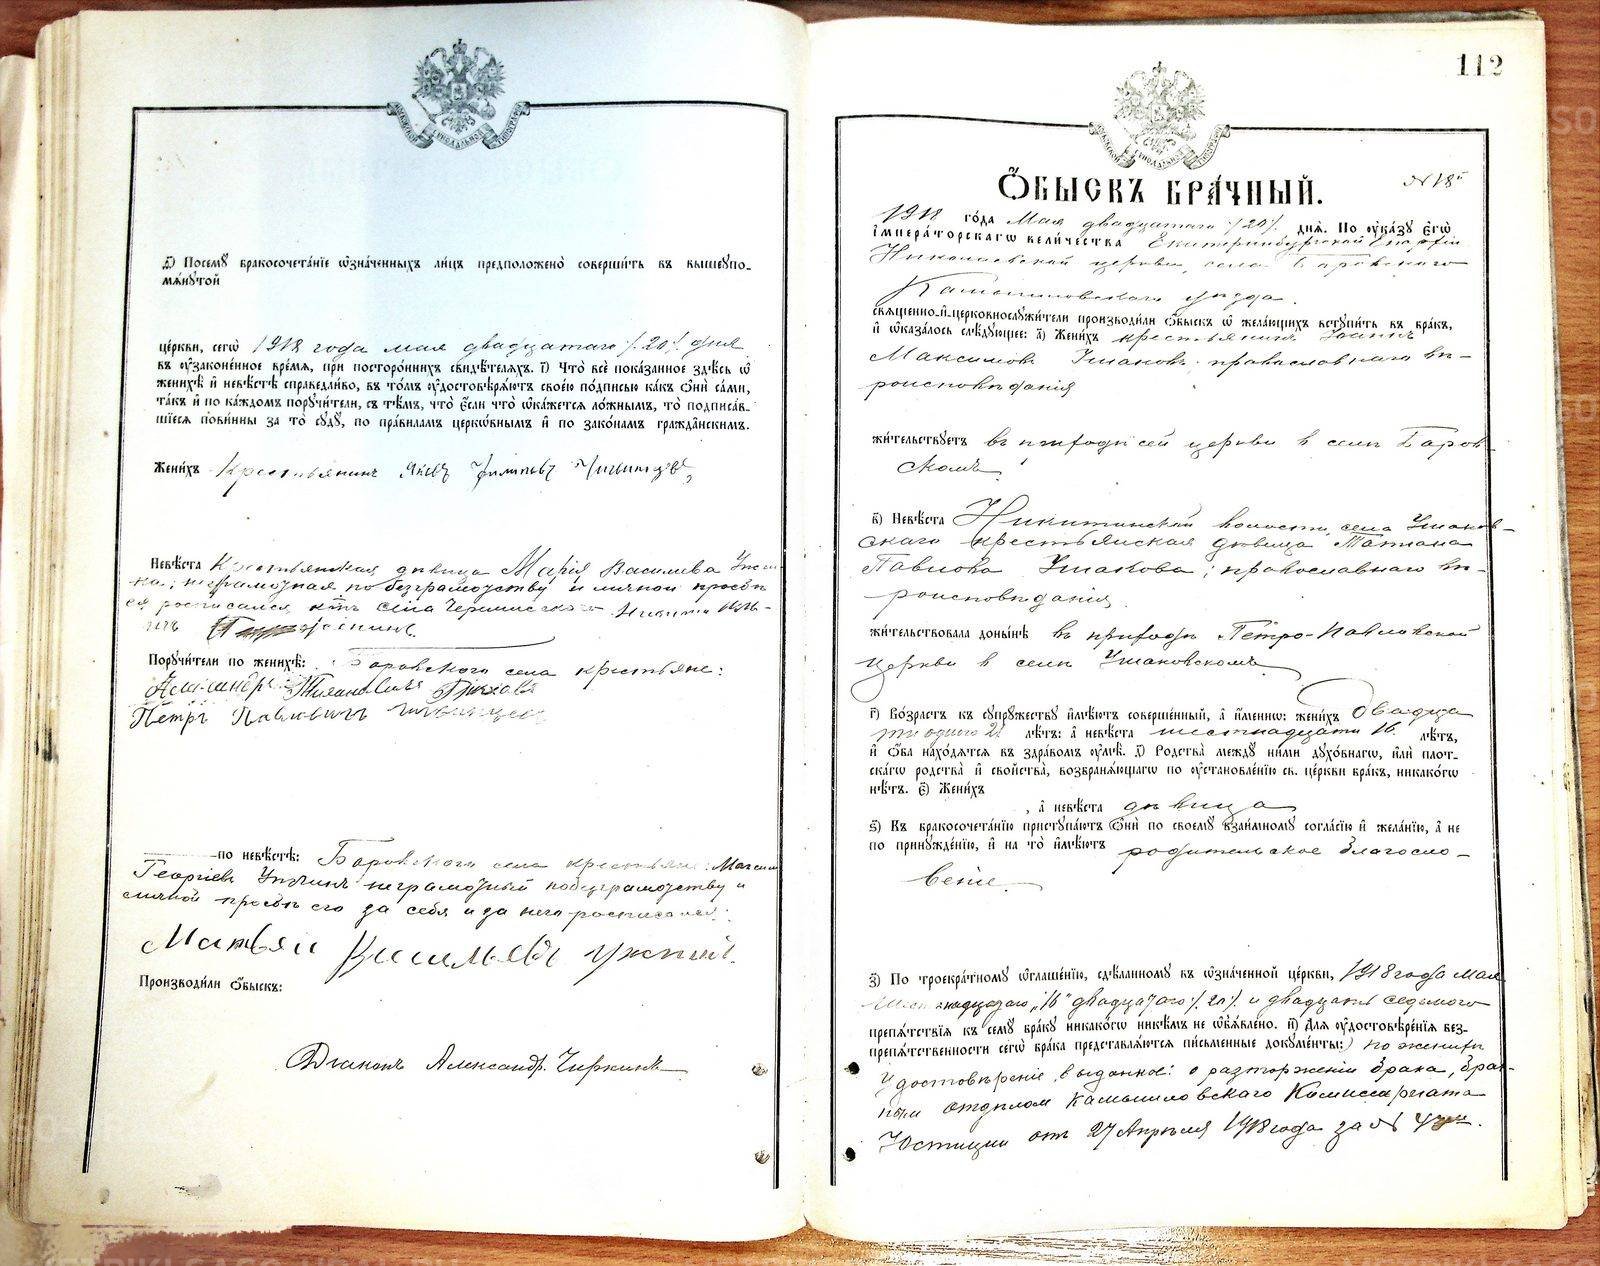 д҃) Посемꙋ бракосочета́нїе ѡ҆зна́ченныхъ ли́цъ предположено̀ соверши́ть въ вышеꙋпо-
мѧ́нꙋтой
це́ркви, сегѡ̀ 1918 года мая двадцатаго /20/ дня
въ ᲂу҆зако́ненное вре́мѧ, при посторо́ннихъ свидѣ́телѧхъ. і҃) Что̀ всѐ пока́занное здѣ́сь ѡ҆
женихѣ̀ и҆ невѣ́стѣ справедли́во, въ то́мъ ᲂу҆достовѣрѧ́ютъ свое́ю по́дписью ка́къ ѻ҆нѝ са́ми,
та́къ и҆ по ка́ждомъ порꙋчи́тели, съ тѣ́мъ, что̀ є҆́сли что̀ ѡ҆ка́жетсѧ ло́жнымъ, то̀ подписа́в-
шїесѧ пови́нны за то̀ сꙋдꙋ̀, по пра́виламъ церко́внымъ и҆ по зако́намъ гражда́нскимъ.
Жени́хъ Крестьянинъ Яковъ
Невѣ́ста Крестьянская дѣвица Марія Васильева
неграмотная, по безграмотству и личной просьбѣ
ея росписался кр-нъ села
Порꙋчи́тели по женихѣ̀: Баровского села крестьяне:
Александръ
Петръ Павловичъ
по невѣ́стѣ: Баровского села крестьяне: Максимъ
Георгіевъ неграмотный по безграмотству и
личной просьбѣ его за себя и за него росписался:
Матвѣй Васильевъ
Производи́ли ѻ҆́быскъ:
Діаконъ Александръ Чиркинъ
112
Ѻ҆́БЫСКЪ БРА́ЧНЫЙ. № 18
1918 го́да Мая двадцатаго /20/ днѧ̀. По ᲂу҆ка́зꙋ є҆гѡ̀
і҆мпера́торскагѡ вели́чества Екатеринбургской Епархіи
Николаевской церкви, села Баровского
Камышловскаго уѣзда.
свѧще́нно-и҆-церковнослꙋжи́тели производи́ли ѻ҆́быскъ ѡ҆ жела́ющихъ встꙋпи́ть въ бра́къ,
и҆ ѡ҆каза́лось слѣ́дꙋющее: а҃) Жени́хъ крестьянинъ Іоаннъ
Максимовъ Ушаковъ; православнаго вѣ-
роисповѣданія
жи́тельствꙋетъ въ приходѣ сей церкви въ селѣ Баров-
скомъ
в҃) Невѣ́ста Никитинской волости села Ушаков-
скаго крестьянская дѣвица Татіана
Павлова Ушакова; православнаго вѣ-
роисповѣданія.
жи́тельствовала доны́нѣ въ приходѣ Петро-Павловской
церкви въ селѣ Ушаковскомъ
г҃) Во́зрастъ къ сꙋпрꙋ́жествꙋ и҆мѣ́ютъ соверше́нный, а҆ и҆́меннѡ: жени́хъ двадца-
ти одного 21 лѣ́тъ: а҆ невѣ́ста шестнадцати 16 лѣ́тъ,
и҆ ѻ҆́ба нахо́дѧтсѧ въ здра́вомъ ᲂу҆мѣ̀. д҃) Родства̀ междꙋ ни́ми дꙋхо́внагѡ, и҆лѝ плот-
ска́гѡ родства̀ и҆ сво́йства, возбранѧ́ющагѡ по ᲂу҆становле́нїю св. це́ркви бра́къ, никако́гѡ
нѣ́тъ. є҃) Жени́хъ
, а҆ невѣ́ста дѣвица
ѕ҃) Къ бракосочета́нїю пристꙋпа́ютъ ѻ҆нѝ по своемꙋ̀ взаи́мномꙋ согла́сїю и҆ жела́нїю, а҆ не
по принꙋжде́нїю, и҆ на то̀ и҆мѣ́ютъ родительское благосло-
веніе.
з҃) По троекра́тномꙋ ѡ҆глаше́нїю, сдѣ́ланномꙋ въ ѡ҆зна́ченной це́ркви, 1918 года Мая
шестнадцатаго „16“ двадцатаго /20/ и двадцать седьмого
препѧ́тствїѧ къ семꙋ̀ бра́кꙋ никако́гѡ никѣ́мъ не ѡ҆б̾ѧ́влено. и҃) Длѧ ᲂу҆достовѣре́нїѧ без-
препѧ́тственности сегѡ̀ бра́ка представлѧ́ютсѧ пи́сьменные докꙋме́нты:) по женихѣ
Удостовѣреніе, выданное: о разторженіи брака, Брач-
нымъ отдѣломъ Камышловскаго Комиссаріата
Юстиціи отъ 27 Апрѣля 1918 года за №